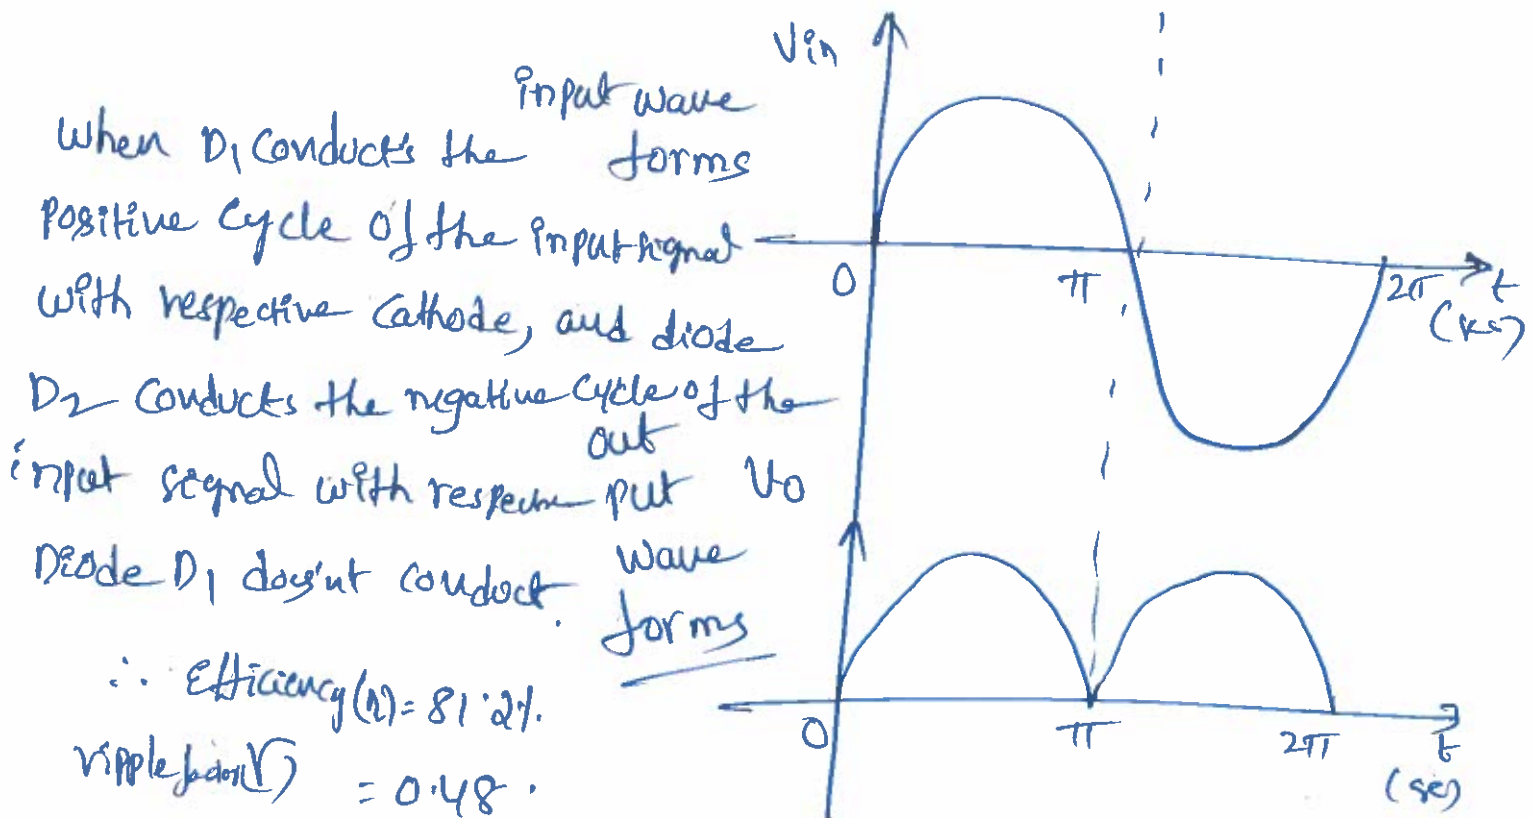 input wave
forms
When D1 conducts the
positive cycle of the input signal
with respective cathode, and diode
D2 conducts the negative cycle of the
input signal with respective
Diode D1 does'nt conduct.
∴ Efficiency(η)= 81.2%.
ripple factor(Γ)
= 0.48.
Vin
0
π
2π
t
out
put
wave
forms
V0
0
π
2π
t
(sec)